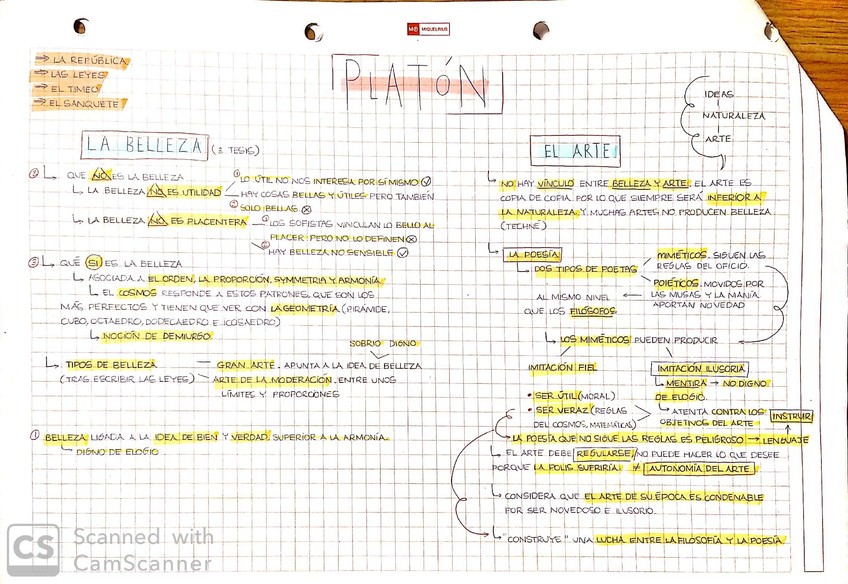 MIQUELRIUS
→ LA REPÚBLICA
→ LAS LEYES
→ EL TIMEO
→ EL BANQUETE
PLATÓN
IDEAS
NATURALEZA
ARTE
LA BELLEZA (3 TESIS)
② QUE NO ES LA BELLEZA
LA BELLEZA NO ES UTILIDAD
① LO ÚTIL NO NOS INTERESA POR SÍ MISMO
HAY COSAS BELLAS Y ÚTILES PERO TAMBIÉN
② SOLO BELLAS
LA BELLEZA NO ES PLACENTERA
① LOS SOFISTAS VINCULAN LO BELLO AL
PLACER. PERO NO LO DEFINEN
② HAY BELLEZA NO SENSIBLE
③ QUÉ SI ES LA BELLEZA
ASOCIADA A EL ORDEN, LA PROPORCIÓN, SYMMETRIA Y ARMONÍA.
EL COSMOS RESPONDE A ESTOS PATRONES, QUE SON LOS
MÁS PERFECTOS Y TIENEN QUE VER CON LA GEOMETRÍA (PIRÁMIDE,
CUBO, OCTAEDRO, DODECAEDRO E ICOSAEDRO)
NOCIÓN DE DEMIURGO.
SOBRIO DIGNO
TIPOS DE BELLEZA
(TRAS ESCRIBIR LAS LEYES)
GRAN ARTE. APUNTA A LA IDEA DE BELLEZA
ARTE DE LA MODERACIÓN. ENTRE UNOS
LÍMITES Y PROPORCIONES
① BELLEZA LIGADA A LA IDEA DE BIEN Y VERDAD. SUPERIOR A LA ARMONÍA.
DIGNO DE ELOGIO
EL ARTE
NO HAY VÍNCULO ENTRE BELLEZA Y ARTE. EL ARTE ES
COPIA DE COPIA. POR LO QUE SIEMPRE SERÁ INFERIOR A
LA NATURALEZA. Y MUCHAS ARTES NO PRODUCEN BELLEZA.
(TECHNÉ)
LA POESÍA
DOS TIPOS DE POETAS
MIMÉTICOS. SIGUEN LAS
REGLAS DEL OFICIO.
POIÉTICOS. MOVIDOS POR
LAS MUSAS Y LA MANÍA
APORTAN NOVEDAD
AL MISMO NIVEL
QUE LOS FILÓSOFOS
LOS MIMÉTICOS PUEDEN PRODUCIR
IMITACIÓN FIEL
• SER ÚTIL (MORAL)
• SER VERAZ (REGLAS
DEL COSMOS, MATEMÁTICAS)
IMITACIÓN ILUSORIA
MENTIRA → NO DIGNO
DE ELOGIO.
ATENTA CONTRA LOS
OBJETIVOS DEL ARTE
INSTRUIR
LA POESÍA QUE NO SIGUE LAS REGLAS ES PELIGROSO → LENGUAJE
EL ARTE DEBE REGULARSE, NO PUEDE HACER LO QUE DESEE
PORQUE LA POLIS SUFRIRÍA ≠ AUTONOMÍA DEL ARTE
CONSIDERA QUE EL ARTE DE SU ÉPOCA ES CONDENABLE
POR SER NOVEDOSO E ILUSORIO.
"CONSTRUYE" UNA LUCHA ENTRE LA FILOSOFÍA Y LA POESÍA.
CS Scanned with
CamScanner